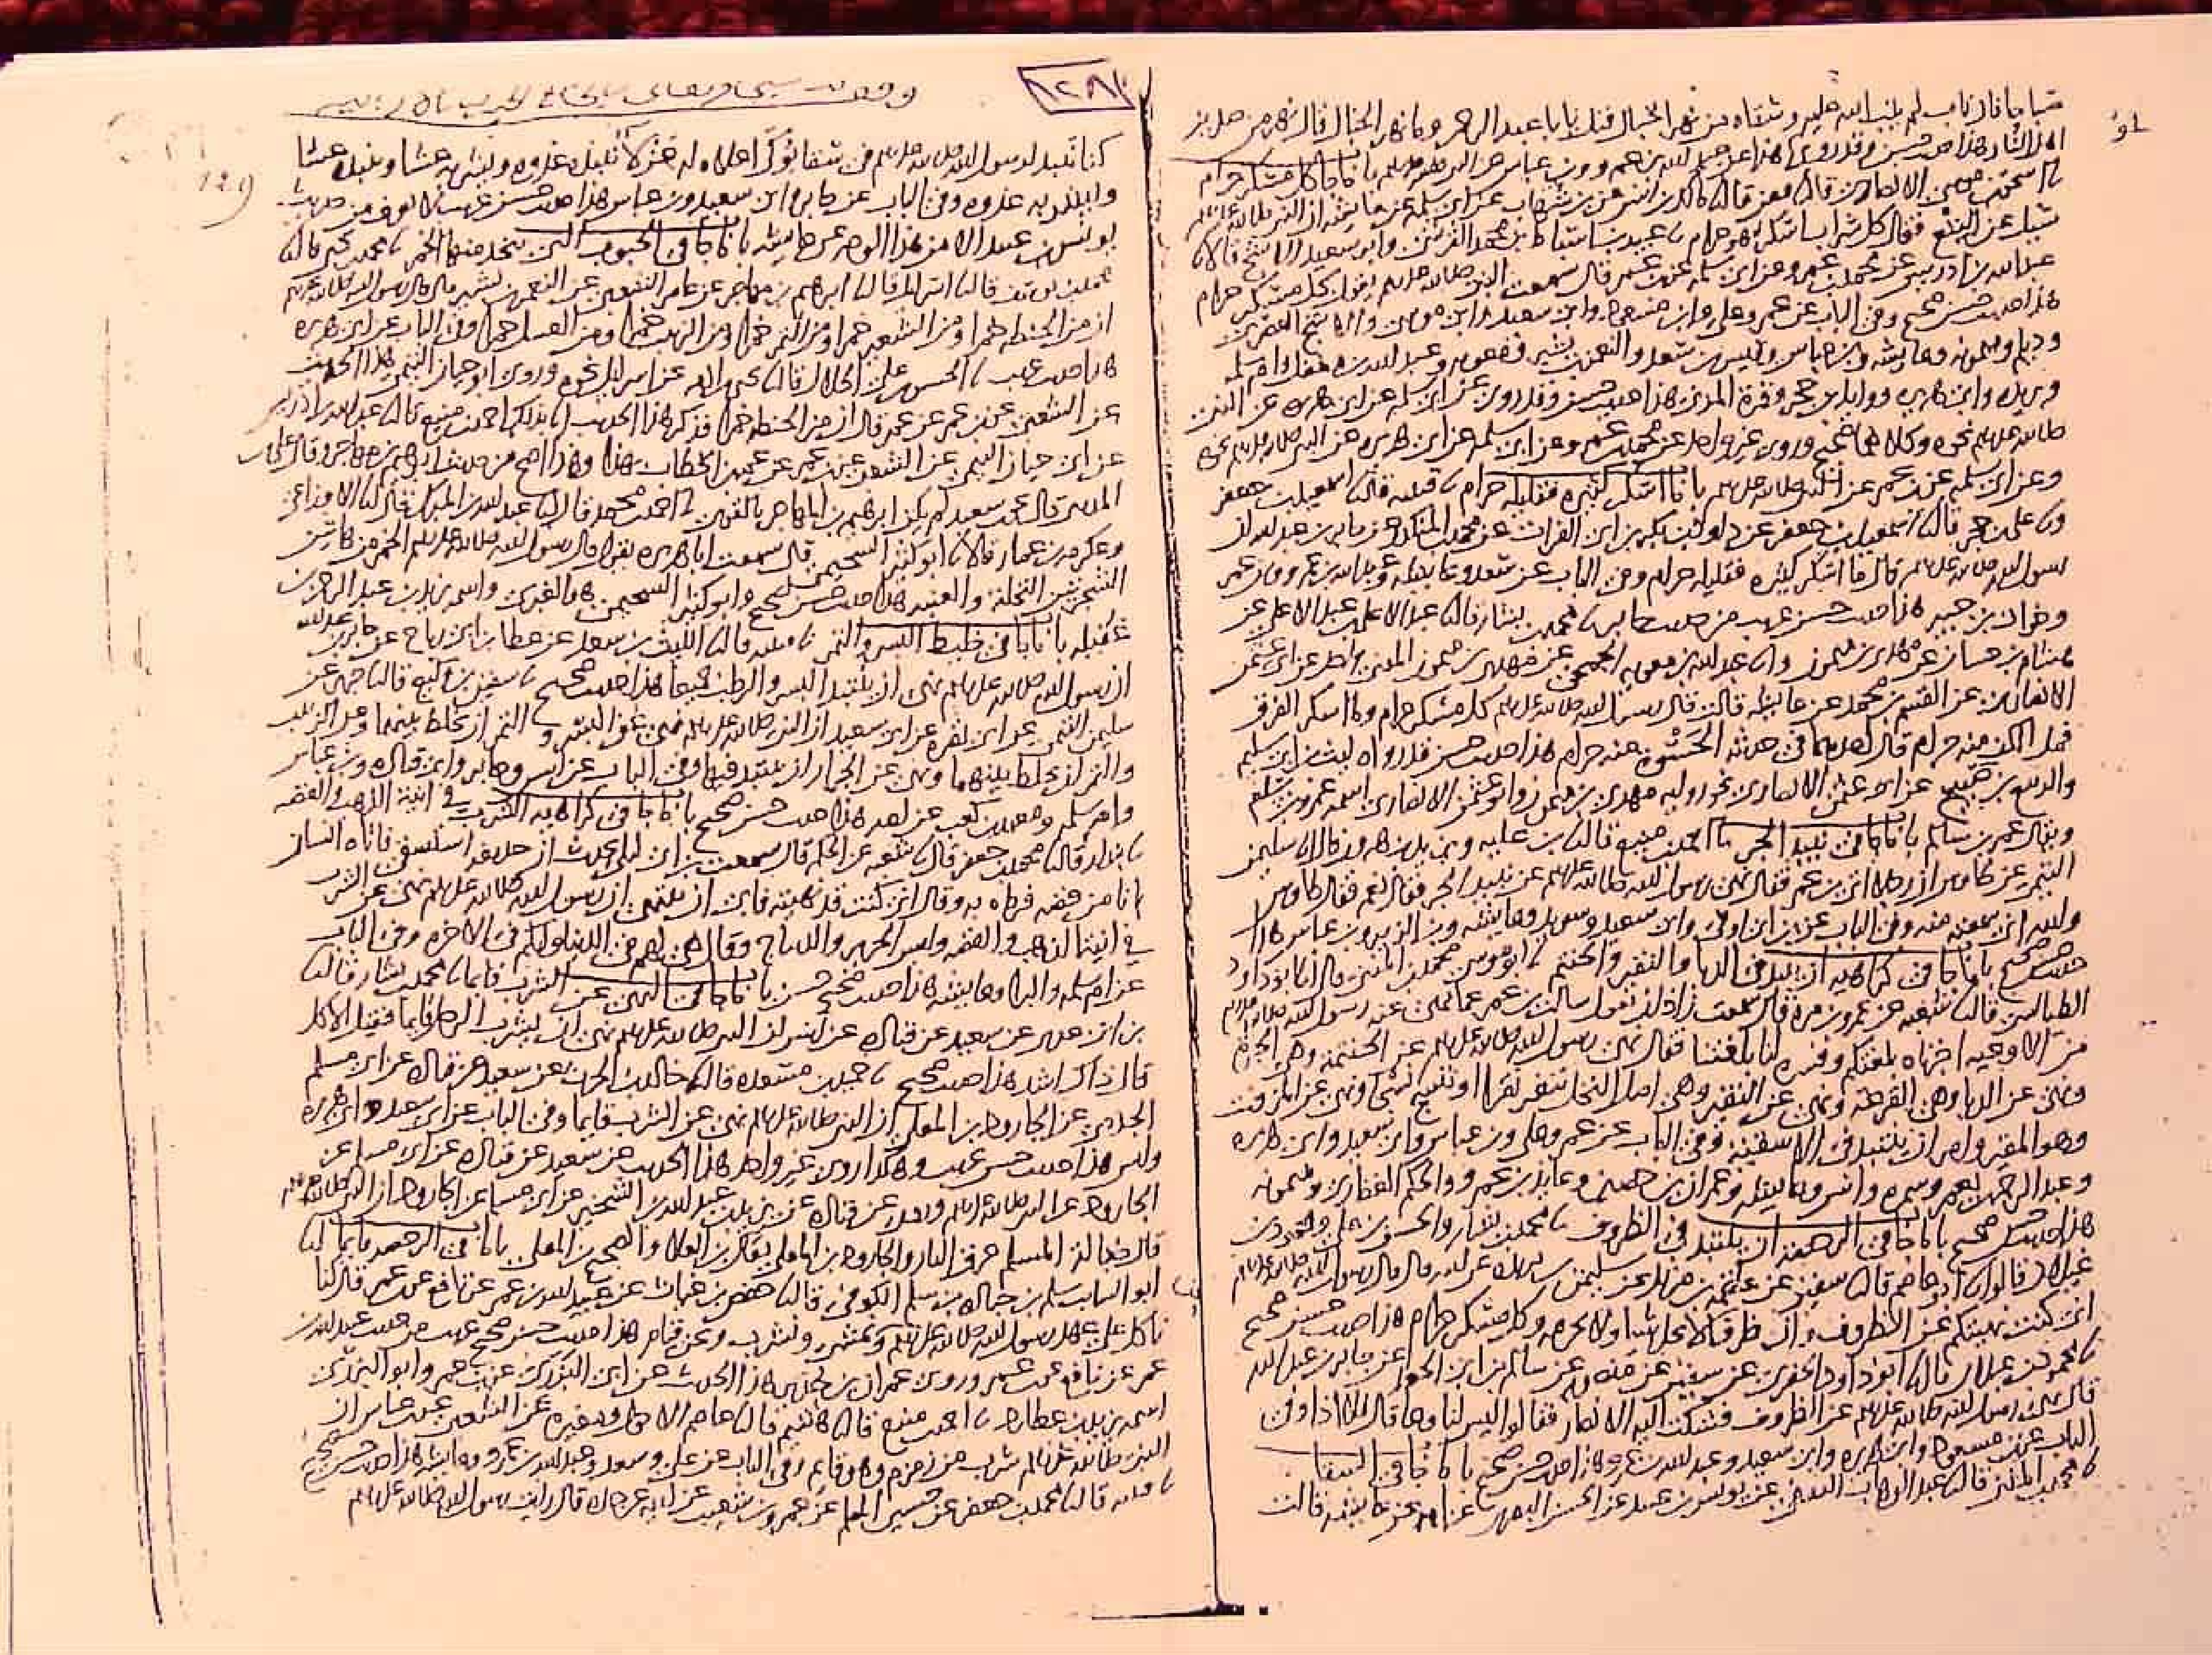 صباحا فان تاب لم يتب الله عليه وسقاه من نهر الخبال قيل يا با عبد الرحمن وما نهر الخبال قال نهر من صديد
اهل النار هذا حديث حسن وقد روي نحو هذا عن عبد الله بن عمرو وبن عباس عن النبي صلى الله عليه وسلم باب ما جا كل مسكر حرام
نا اسحق بن موسى الانصاري قال نا معن قال نا مالك بن انس عن بن شهاب عن ابي سلمة عن عايشة ان النبي صلى الله عليه وسلم
سيل عن البتع فقال كل شراب اسكر فهو حرام نا عبيد بن اسباط بن محمد القرشي وابو سعيد الاشج قالا نا
عبد الله بن ادريس عن محمد بن عمرو عن ابي سلمة عن بن عمر قال سمعت النبي صلى الله عليه وسلم يقول كل مسكر حرام
هذا حديث حسن صحيح وفي الباب عن عمر وعلي وابن مسعود وابي سعيد وابي موسى والاشج العصري
وديلم وميمونة وعايشة وبن عباس وقيس بن سعد والنعمن بن بشير ومعوية وعبد الله بن مغفل وام سلمة
وبريدة وابي هريرة ووايل بن حجر وقرة المزني هذا حديث حسن وقد روي عن ابي سلمة عن ابي هريرة عن النبي
صلى الله عليه وسلم نحوه وكلاهما صحيح وروى غير واحد عن محمد بن عمرو عن ابي سلمة عن ابي هريرة عن النبي صلى الله عليه وسلم نحوه
وعن ابي سلمة عن بن عمر عن النبي صلى الله عليه وسلم باب ما اسكر كثيره فقليله حرام نا قتيبة قال نا اسمعيل بن جعفر
ونا علي بن حجر قال نا اسمعيل بن جعفر عن داود بن بكر بن ابي الفرات عن محمد بن المنكدر عن جابر بن عبد الله ان
رسول الله صلى الله عليه وسلم قال ما اسكر كثيره فقليله حرام وفي الباب عن سعد وعايشة وعبد الله بن عمرو وبن عمر
وخوات بن جبير هذا حديث حسن غريب من حديث جابر نا محمد بن بشار قال نا عبد الاعلى بن عبد الاعلى عن
هشام بن حسان عن مهدي بن ميمون ونا عبد الله بن معوية الجمحي عن مهدي بن ميمون المعنى واحد عن ابي عثمن
الانصاري عن القسم بن محمد عن عايشة قالت قال رسول الله صلى الله عليه وسلم كل مسكر حرام وما اسكر الفرق
فملء الكف منه حرام قال احدهما في حديثه الحسوة منه حرام هذا حديث حسن قد رواه ليث بن ابي سليم
والربيع بن صبيح عن ابي عثمن الانصاري نحو رواية مهدي بن ميمون وابو عثمن الانصاري اسمه عمرو بن سالم
ويقال عمر بن سالم باب ما جا في نبيذ الجر نا احمد بن منيع قال نا بن علية ويزيد بن هرون قالا نا سليمن
التيمي عن طاوس ان رجلا اتى بن عمر فقال نهى رسول الله صلى الله عليه وسلم عن نبيذ الجر فقال نعم فقال طاوس
والله اني سمعته منه وفي الباب عن بن ابي اوفى وابي سعيد وسويد وعايشة وبن الزبير وبن عباس هذا
حديث حسن صحيح باب ما جا في كراهية ان ينبذ في الدبا والنقير والحنتم نا ابو موسى محمد بن المثنى قال نا ابو داود
الطيالسي قال نا شعبة عن عمرو بن مرة قال سمعت زاذان يقول سالت بن عمر عما نهى عنه رسول الله صلى الله عليه وسلم
من الاوعية اخبرناه بلغتكم وفسره لنا بلغتنا فقال نهى رسول الله صلى الله عليه وسلم عن الحنتمة وهي الجرة
ونهى عن الدبا وهي القرعة ونهى عن النقير وهي اصل النخل ينقر نقرا او ينسح نسحا ونهى عن المزفت
وهو المقير وامر ان ينتبذ في الاسقية وفي الباب عن عمر وعلي وبن عباس وابي سعيد وابي هريرة
وعبد الرحمن بن يعمر وسمرة وانس وعايشة وعمران بن حصين وعايذ بن عمرو والحكم الغفاري وميمونة
هذا حديث حسن صحيح باب ما جا في الرخصة ان ينتبذ في الظروف نا محمد بن بشار والحسن بن علي ومحمود بن
غيلان قالوا نا ابو عاصم قال نا سفين عن علقمة بن مرثد عن سليمن بن بريدة عن ابيه قال قال رسول الله صلى الله عليه وسلم
اني كنت نهيتكم عن الظروف وان ظرفا لا يحل شيا ولا يحرمه وكل مسكر حرام هذا حديث حسن صحيح
نا محمود بن غيلان قال نا ابو داود الحفري عن سفين عن منصور عن سالم بن ابي الجعد عن جابر بن عبد الله
قال نهى رسول الله صلى الله عليه وسلم عن الظروف فشكت اليه الانصار فقالوا ليس لنا وعا قال فلا اذا وفي
الباب عن بن مسعود وابي هريرة وابي سعيد وعبد الله بن عمرو هذا حديث حسن صحيح باب ما جا في السقا
نا محمد بن المثنى قال نا عبد الوهاب الثقفي عن يونس بن عبيد عن الحسن البصري عن امه عن عايشة قالت
١٢٨
129
كنا ننبذ لرسول الله صلى الله عليه وسلم في سقا يوكا اعلاه له عزلا ننبذه غدوة ويشربه عشا وننبذه عشا
ويشربه غدوة وفي الباب عن جابر وابي سعيد وبن عباس هذا حديث حسن غريب لا نعرفه من حديث
يونس بن عبيد الا من هذا الوجه عن عايشة باب ما جا في الحبوب التي يتخذ منها الخمر نا محمد بن يحيى قال نا
محمد بن يوسف قال نا اسرايل قال نا ابرهيم بن مهاجر عن عامر الشعبي عن النعمن بن بشير قال قال رسول الله صلى الله عليه وسلم
ان من الحنطة خمرا ومن الشعير خمرا ومن التمر خمرا ومن الزبيب خمرا ومن العسل خمرا وفي الباب عن ابي هريرة
هذا حديث غريب نا الحسن بن علي الخلال قال نا يحيى بن ادم عن اسرايل نحوه وروى ابو حيان التيمي هذا الحديث
عن الشعبي عن بن عمر عن عمر قال ان من الحنطة خمرا فذكر هذا الحديث نا بذلك احمد بن منيع قال نا عبد الله بن ادريس
عن ابي حيان التيمي عن الشعبي عن بن عمر عن عمر بن الخطاب بهذا وهذا اصح من حديث ابرهيم بن مهاجر وقال علي بن
المديني قال يحيى بن سعيد لم يكن ابرهيم بن المهاجر بالقوي نا احمد بن محمد قال نا عبد الله بن المبارك قال نا الاوزاعي
وعكرمة بن عمار قالا نا ابو كثير السحيمي قال سمعت ابا هريرة يقول قال رسول الله صلى الله عليه وسلم الخمر من هاتين
الشجرتين النخلة والعنبة هذا حديث حسن صحيح وابو كثير السحيمي هو الغبري واسمه يزيد بن عبد الرحمن بن
غفيلة باب ما جا في خليط البسر والتمر نا قتيبة قال نا الليث بن سعد عن عطا بن ابي رباح عن جابر بن عبد الله
ان رسول الله صلى الله عليه وسلم نهى ان ينتبذ البسر والرطب جميعا هذا حديث صحيح نا سفين بن وكيع قال نا جرير عن
سليمن التيمي عن ابي نضرة عن ابي سعيد ان النبي صلى الله عليه وسلم نهى عن البسر والتمر ان يخلط بينهما وعن الزبيب
والتمر ان يخلط بينهما ونهى عن الجرار ان ينتبذ فيها وفي الباب عن انس وجابر وابي قتادة وبن عباس
وام سلمة ومعبد بن كعب عن امه هذا حديث حسن صحيح باب ما جا في كراهية الشرب في انية الذهب والفضة
نا بندار قال نا محمد بن جعفر قال نا شعبة عن الحكم قال سمعت بن ابي ليلى يحدث ان حذيفة استسقى فاتاه انسان
بانا من فضة فرماه به وقال اني كنت قد نهيته فابى ان ينتهي ان رسول الله صلى الله عليه وسلم نهى عن الشرب
في انية الذهب والفضة ولبس الحرير والديباج وقال هي لهم في الدنيا ولكم في الاخرة وفي الباب
عن ام سلمة والبرا وعايشة هذا حديث صحيح حسن باب ما جا في النهي عن الشرب قايما نا محمد بن بشار قال نا
بن ابي عدي عن سعيد عن قتادة عن انس ان النبي صلى الله عليه وسلم نهى ان يشرب الرجل قايما فقيل الاكل
قال ذاك اشد هذا حديث صحيح نا حميد بن مسعدة قال نا خالد بن الحرث عن سعيد عن قتادة عن ابي مسلم
الجذمي عن الجارود بن المعلى ان النبي صلى الله عليه وسلم نهى عن الشرب قايما وفي الباب عن ابي سعيد وابي هريرة
وانس هذا حديث حسن غريب وهكذا روى غير واحد هذا الحديث عن سعيد عن قتادة عن ابي مسلم عن
الجارود عن النبي صلى الله عليه وسلم وروي عن قتادة عن يزيد بن عبد الله بن الشخير عن ابي مسلم عن الجارود ان النبي صلى الله عليه وسلم
قال ضالة المسلم حرق النار والجارود بن المعلى يقال بن العلا والصحيح بن المعلى باب ما جا في الرخصة قايما نا
ابو السايب سلم بن جنادة بن سلم الكوفي قال نا حفص بن غياث عن عبيد الله بن عمر عن نافع عن بن عمر قال كنا
ناكل على عهد رسول الله صلى الله عليه وسلم ونحن نمشي ونشرب ونحن قيام هذا حديث حسن صحيح غريب من حديث عبيد الله بن
عمر عن نافع عن بن عمر وروى عمران بن حدير هذا الحديث عن ابي البزري عن بن عمر وابو البزري
اسمه يزيد بن عطارد نا احمد بن منيع قال نا هشيم قال نا عاصم الاحول ومغيرة عن الشعبي عن بن عباس ان
النبي صلى الله عليه وسلم شرب من زمزم وهو قايم وفي الباب عن علي وسعد وعبد الله بن عمرو وعايشة هذا حديث حسن صحيح
نا قتيبة قال نا محمد بن جعفر عن حسين المعلم عن عمرو بن شعيب عن ابيه عن جده قال رايت رسول الله صلى الله عليه وسلم